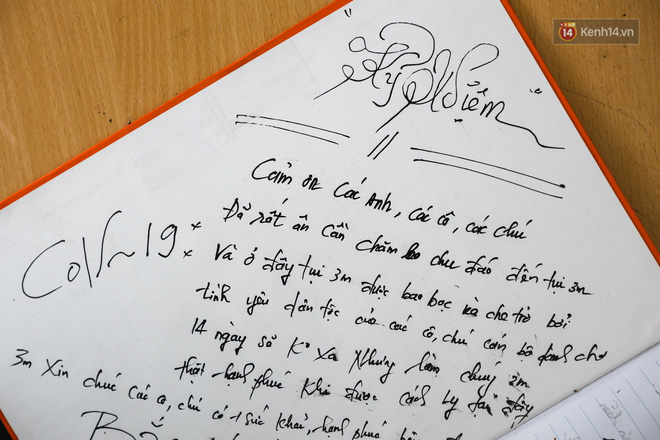 14 Kenh14.vn
" Kỷ Niệm "
Cảm ơn Các Anh, các cô, các chú
Đã rất ân cần chăm lo chu đáo đến tụi 3m
CoV~19 Và ở đây tụi 3m được bao bọc và che trở bởi
tình yêu dân tộc của các cô, chú cán bộ dành cho
14 ngày số K° Xa Nhưng làm chúng 3m
thật hạnh phúc khi được cách Ly tại đây
3m Xin chúc Các cô, chú có 1 Sức khoẻ, hạnh phúc